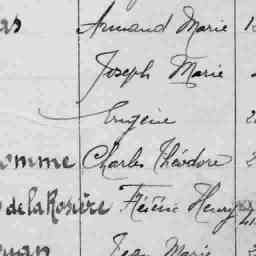 Armand Marie
Joseph Marie
Eugène
omme Charles Théodore
de la Rosière Henry
Jean Marie